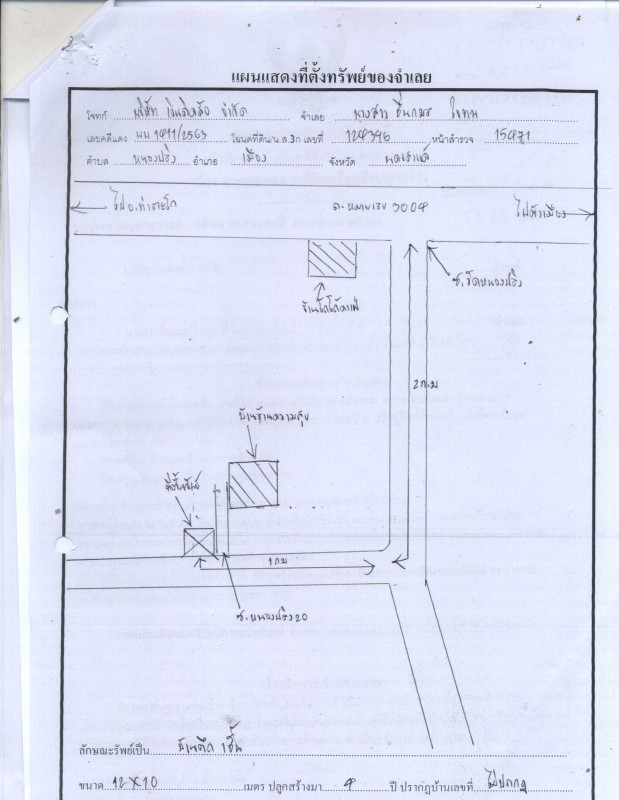 2
แผนแสดงที่ตั้งทรัพย์ของจำเลย
โจทก์ บริษัท เงินติดล้อ จำกัด จำเลย นางสาว ชื่นกมร ใจทน
เลขคดีแดง ผบ 1911/2563 โฉนดที่ดิน/น.ส.3ก เลขที่ 129396 หน้าสำรวจ 15991
ตำบล หนองปลิง อำเภอ เมือง จังหวัด นครสวรรค์
ไป อ.ท่าตะโก
ถ.หมายเลข 3004
ไปตัวเมือง
ซ.วัดหนองปลิง
2 กม
บ้านฐานความสุข
ที่ตั้งทรัพย์
1 กม
ซ.หนองปลิง 20
ลักษณะทรัพย์เป็น บ้านตึก 1 ชั้น
ขนาด 12 X 10 เมตร ปลูกสร้างมา 9 ปี ปรากฏบ้านเลขที่ ไม่ปรากฏ